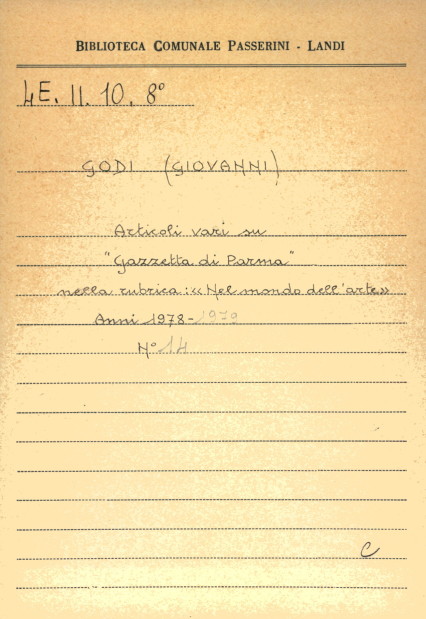 BIBLIOTECA COMUNALE PASSERINI - LANDI
4E. II. 10. 8°
GODI (GIOVANNI)
Articoli vari su
"Gazzetta di Parma"
nella rubrica: «Nel mondo dell'arte»
Anni 1978-1979
N° 14
C